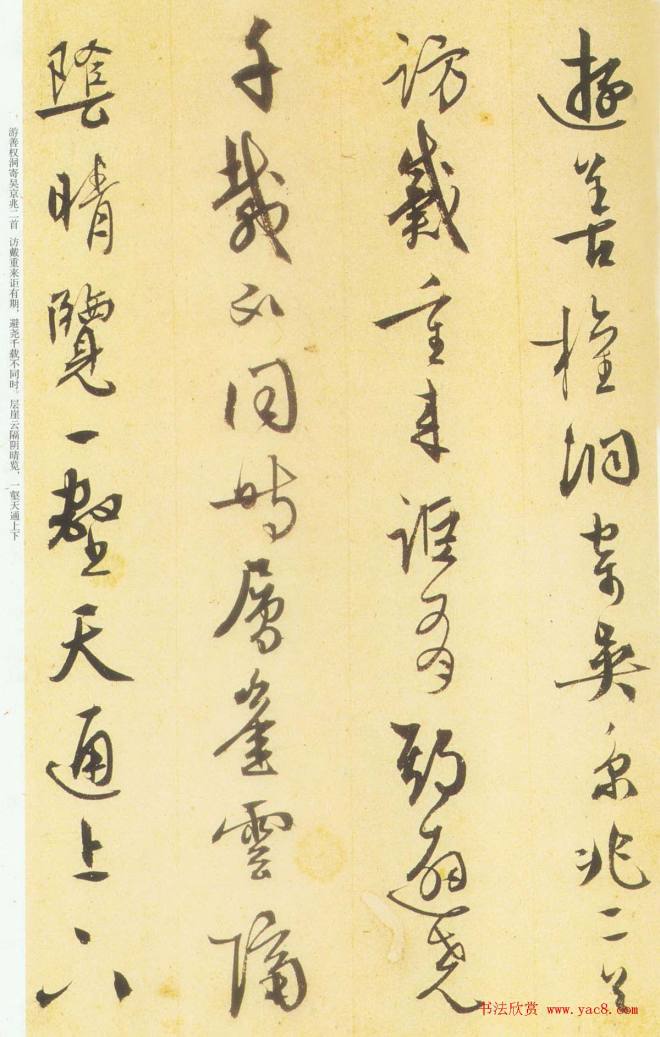 遊善權洞寄吳京兆二首
訪戴重来詎有期避堯
千載不同時層崖雲隔
陰晴覽一壑天通上下
游善权洞寄吴京兆二首 访戴重来讵有期，避尧千载不同时。层崖云隔阴晴览，一壑天通上下
书法欣赏 www.yac8.com